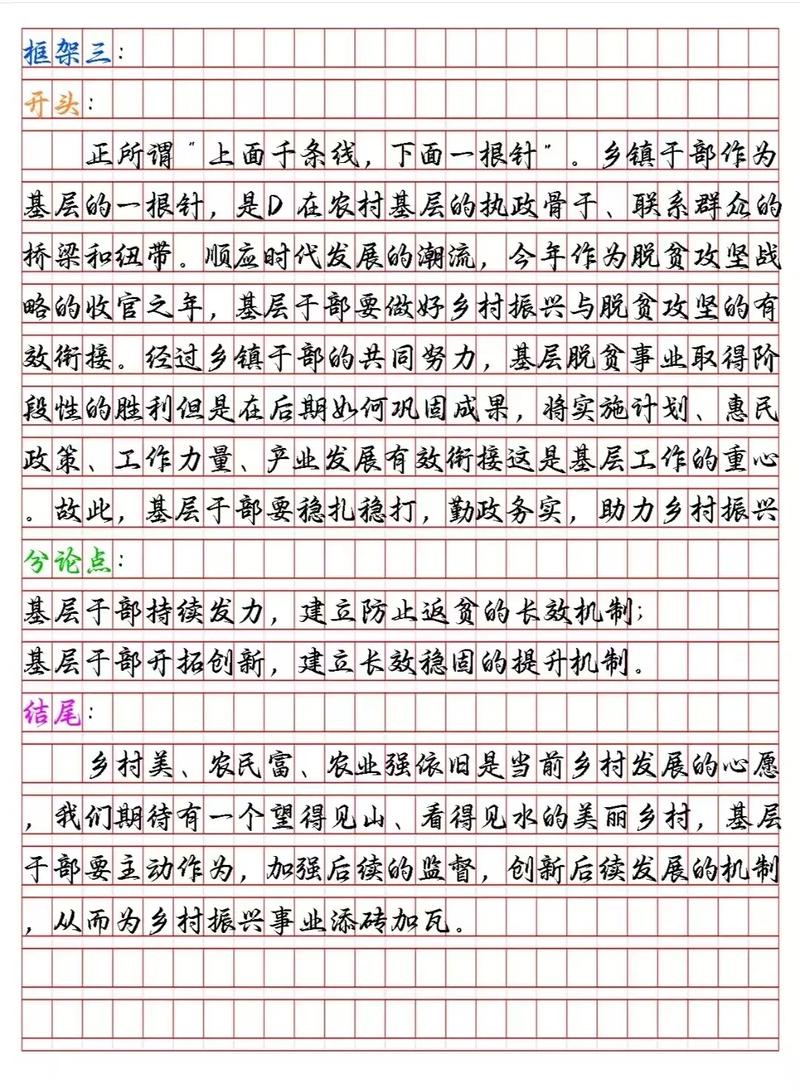 框架三：
开头：
正所谓“上面千条线，下面一根针”。乡镇干部作为
基层的一根针，是D 在农村基层的执政骨干、联系群众的
桥梁和纽带。顺应时代发展的潮流，今年作为脱贫攻坚战
略的收官之年，基层干部要做好乡村振兴与脱贫攻坚的有
效衔接。经过乡镇干部的共同努力，基层脱贫事业取得阶
段性的胜利但是在后期如何巩固成果，将实施计划、惠民
政策、工作力量、产业发展有效衔接这是基层工作的重心
。故此，基层干部要稳扎稳打，勤政务实，助力乡村振兴
分论点：
基层干部持续发力，建立防止返贫的长效机制；
基层干部开拓创新，建立长效稳固的提升机制。
结尾：
乡村美、农民富、农业强依旧是当前乡村发展的心愿
，我们期待有一个望得见山、看得见水的美丽乡村，基层
干部要主动作为，加强后续的监督，创新后续发展的机制
，从而为乡村振兴事业添砖加瓦。